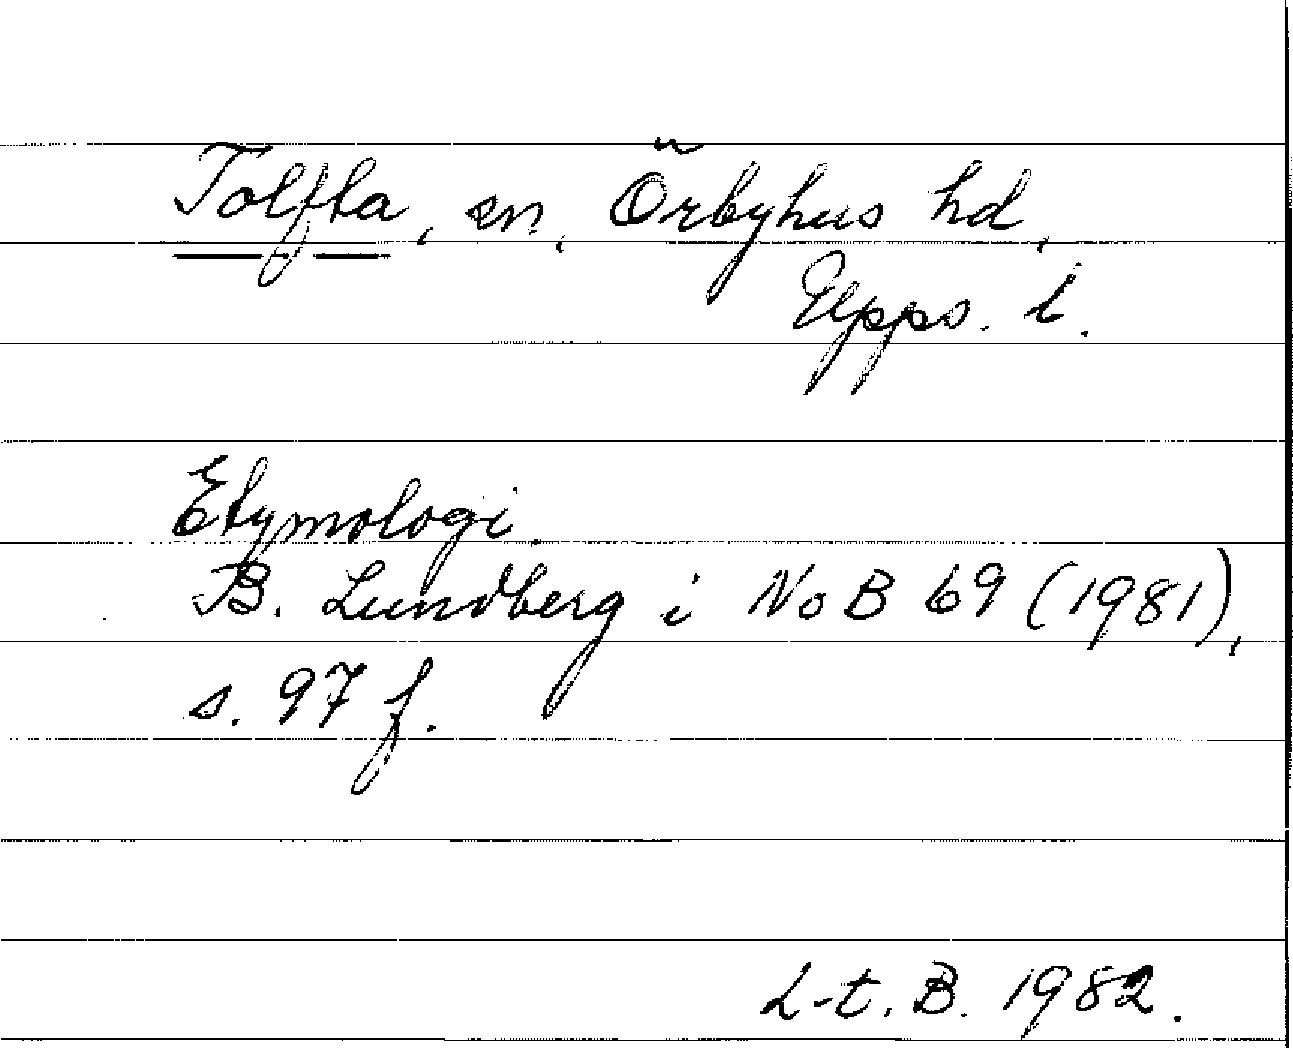 Tolfta, sn, Örbyhus hd,
Upps. l.
Etymologi.
B. Lundberg i NoB 69 (1981),
s. 97 f.
L-t. B. 1982.